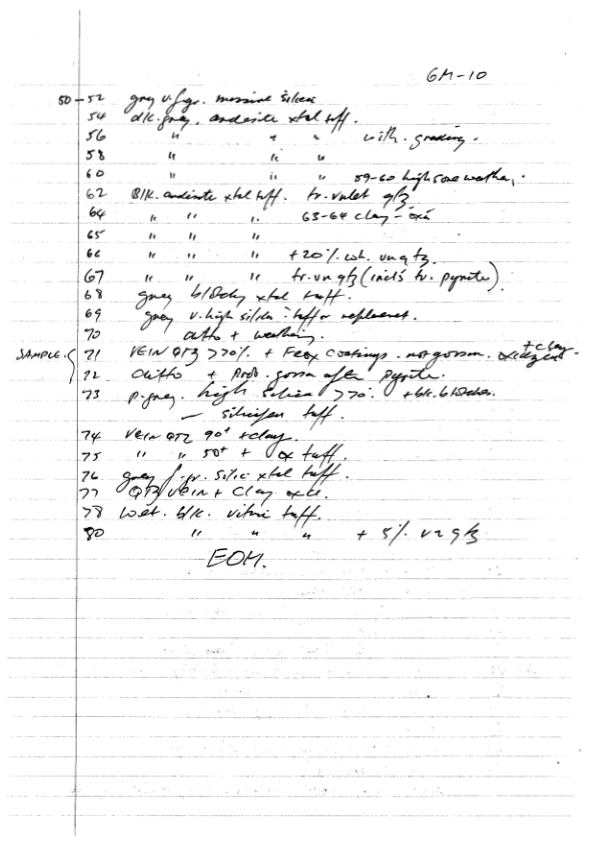 GM-10
50-52 grey v.f.gr. massive silica
54 dk. grey. andesite xtal tuff.
56 " " " with grading.
58 " " "
60 " " " 59-60 high some weather.
62 Blk. andesite xtal tuff. tr. qtz
64 " " " 63-64 clay-oxd
65 " " "
66 " " " +20% wh. vn qtz.
67 " " " tr. vn qtz (incls tr. pyrite)
68 grey blotchy xtal tuff.
69 grey v. high silica ? tuff or replacmet.
70 ditto + weathering.
SAMPLE. { 71 VEIN QTZ >70% + Feox coatings. not gossan. oxidized + clay.
72 ditto + prob. gossan after pyrite.
73 p. grey. high silica >70% + blk. blotches.
— silicified tuff.
74 VEIN QTZ 90+ + clay.
75 " " 50+ + ox tuff.
76 grey f. gr. silic xtal tuff.
77 QTZ VEIN + Clay
78 wet. blk. vitric tuff.
80 " " " + 5% vn qtz
EOH.